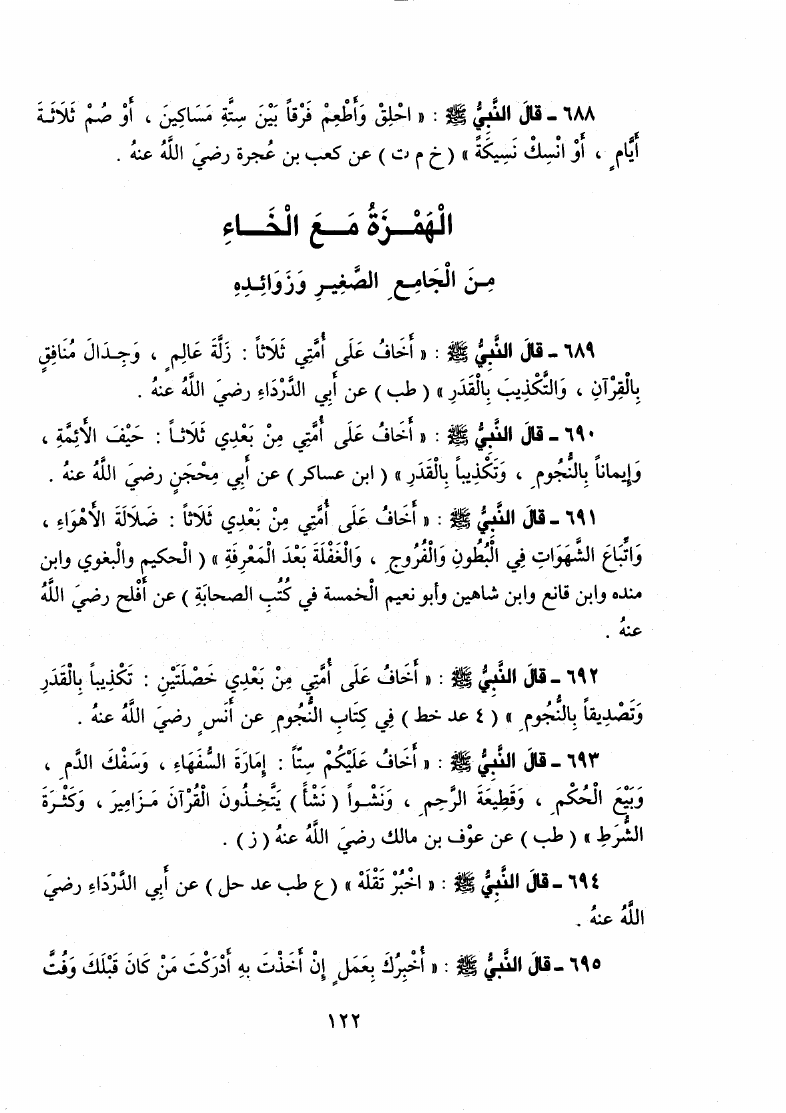 ٦٨٨ - قالَ النَّبِيُّ ﷺ : « احْلِقْ وَأَطْعِمْ فَرْقاً بَيْنَ سِتَّةِ مَسَاكِينَ ، أَوْ صُمْ ثَلَاثَةَ
أَيَّامٍ ، أَوْ انْسِكْ نَسِيكَةً » ( خ م ت ) عن كعب بن عُجرة رضيَ اللَّهُ عنهُ .
الْهَمْزَةُ مَعَ الْخَاءِ
مِنَ الْجَامِعِ الصَّغِيرِ وَزَوَائِدِهِ
٦٨٩ - قالَ النَّبِيُّ ﷺ : « أَخَافُ عَلَى أُمَّتِي ثَلَاثاً : زَلَّةَ عَالِمٍ ، وَجِدَالَ مُنَافِقٍ
بِالْقُرْآنِ ، وَالتَّكْذِيبَ بِالْقَدَرِ » ( طب ) عن أَبِي الدَّرْدَاءِ رضيَ اللَّهُ عنهُ .
٦٩٠ - قالَ النَّبِيُّ ﷺ : « أَخَافُ عَلَى أُمَّتِي مِنْ بَعْدِي ثَلَاثاً : حَيْفَ الأَئِمَّةِ ،
وَإِيماناً بِالنُّجُومِ ، وَتَكْذِيباً بِالْقَدَرِ » ( ابن عساكر ) عن أَبِي مِحْجَنٍ رضيَ اللَّهُ عنهُ .
٦٩١ - قالَ النَّبِيُّ ﷺ : « أَخَافُ عَلَى أُمَّتِي مِنْ بَعْدِي ثَلَاثاً : ضَلَالَةَ الأَهْوَاءِ ،
وَاتِّبَاعَ الشَّهَوَاتِ فِي الْبُطُونِ وَالْفُرُوجِ ، وَالْغَفْلَةَ بَعْدَ الْمَعْرِفَةِ » ( الْحكيم والْبغوي وابن
منده وابن قانع وابن شاهين وأبو نعيم الْخمسة في كُتُبِ الصحابَةِ ) عن أَفْلح رضيَ اللَّهُ
عنهُ .
٦٩٢ - قالَ النَّبِيُّ ﷺ : « أَخَافُ عَلَى أُمَّتِي مِنْ بَعْدِي خَصْلَتَيْنِ : تَكْذِيباً بِالْقَدَرِ
وَتَصْدِيقاً بِالنُّجُومِ » ( ٤ عد خط ) فِي كِتَابِ النُّجُومِ عن أَنَسٍ رضيَ اللَّهُ عنهُ .
٦٩٣ - قالَ النَّبِيُّ ﷺ : « أَخَافُ عَلَيْكُمْ سِتّاً : إِمَارَةَ السُّفَهَاءِ ، وَسَفْكَ الدَّمِ ،
وَبَيْعَ الْحُكْمِ ، وَقَطِيعَةَ الرَّحِمِ ، وَنَشْواً ( نَشْأً ) يَتَّخِذُونَ الْقُرْآنَ مَزَامِيرَ ، وَكَثْرَةَ
الشُّرَطِ » ( طب ) عن عوْف بن مالك رضيَ اللَّهُ عنهُ ( ز ) .
٦٩٤ - قالَ النَّبِيُّ ﷺ : « اخْبُرْ تَقْلَهْ » ( ع طب عد حل ) عن أَبِي الدَّرْدَاءِ رضيَ
اللَّهُ عنهُ .
٦٩٥ - قالَ النَّبِيُّ ﷺ : « أُخْبِرُكَ بِعَمَلٍ إِنْ أَخَذْتَ بِهِ أَدْرَكْتَ مَنْ كَانَ قَبْلَكَ وَفُتَّ
١٢٢